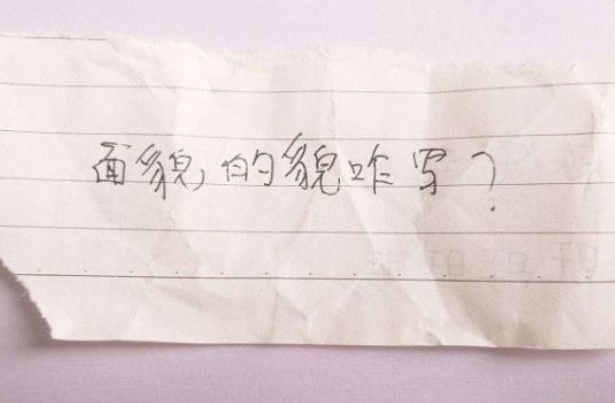 面貌的貌咋写？